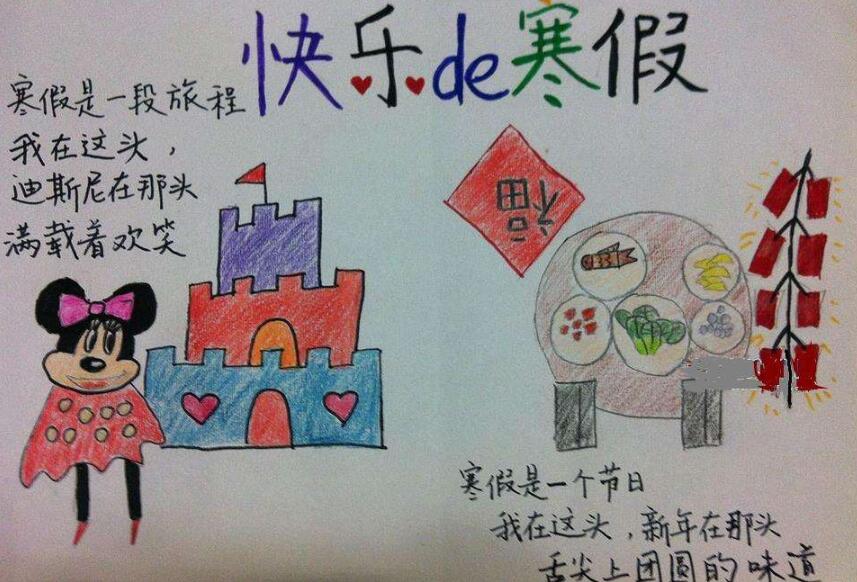 快乐de寒假
寒假是一段旅程
我在这头，
迪斯尼在那头
满载着欢笑
福
寒假是一个节日
我在这头，新年在那头
舌尖上团圆的味道